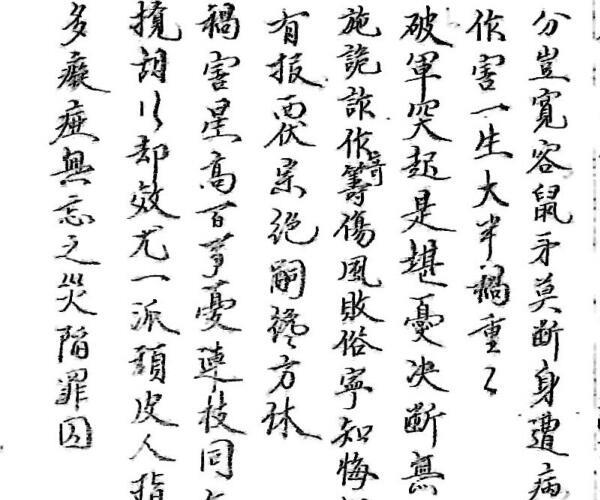 分豈寬容鼠牙莫斷身遭病
作害一生大半禍重〻
破軍突起是堪憂決斷無
施詭詐作奇籌傷風敗俗寧知悔
有报覆宗绝嗣方休
禍害星高百事憂連枝同
胡行却效尤一派頑皮人指
多癡症無忘之災陷罪囚